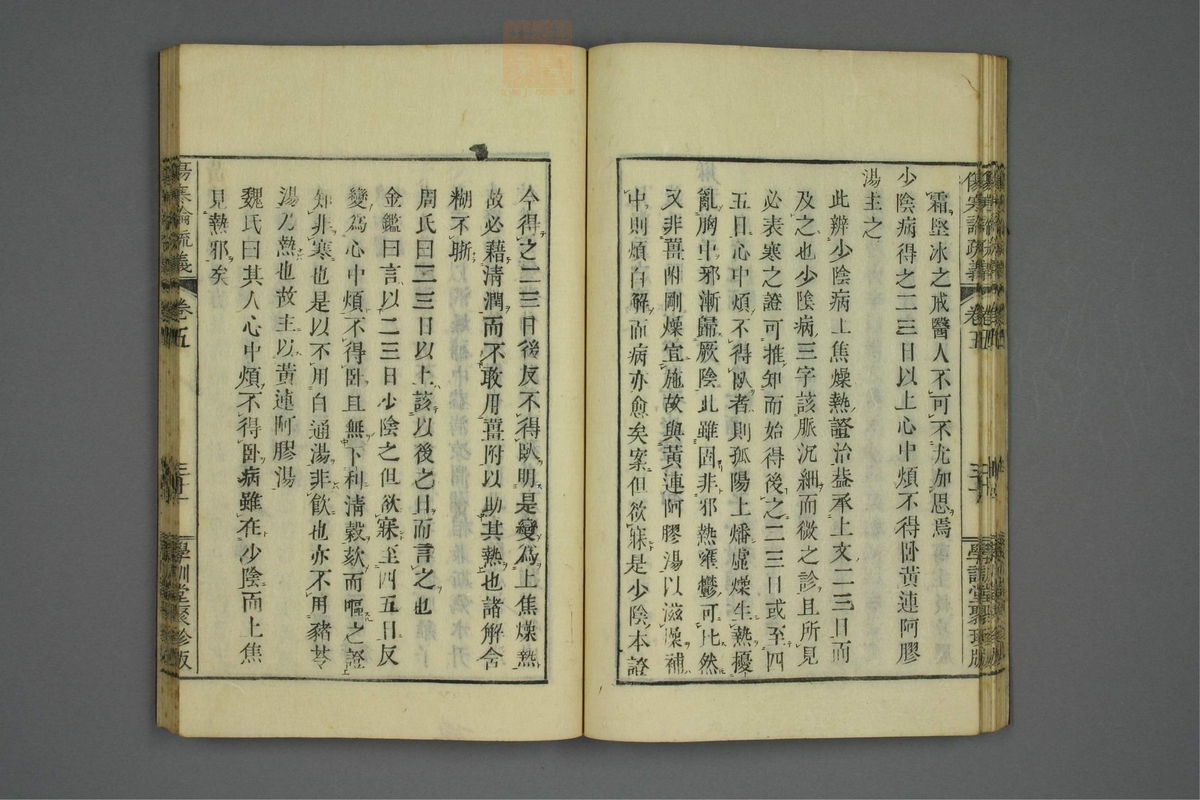 傷寒論疏義 卷五 三十 學訓堂聚珍版
霜堅冰之戒醫人不可不尤加思焉
少陰病得之二三日以上心中煩不得卧黃連阿膠
湯主之
此辨少陰病上焦燥熱證治葢承上文二三日而
及之也少陰病三字該脈沉細而微之診且所見
必表寒之證可推知而始得後之二三日或至四
五日心中煩不得臥者則孤陽上燔虛燥生熱擾
亂胸中邪漸歸厥陰此雖固非邪熱壅鬱可比然
又非薑附剛燥宜施故與黃連阿膠湯以滋澡補
中則煩自解而病亦愈矣案但欲寐是少陰本證
今得之二三日後反不得臥明是變為上焦燥熱
故必藉清潤而不敢用薑附以助其熱也諸解含
糊不晣
周氏曰二三日以上該以後之日而言之也
金鑑曰言以二三日少陰之但欲寐至四五日反
變為心中煩不得卧且無下利清穀欬而嘔之證
知非寒也是以不用白通湯非飲也亦不用豬苓
湯乃熱也故主以黃連阿膠湯
魏氏曰其人心中煩不得卧病雖在少陰而上焦
見熱邪矣
傷寒論疏義 卷五 三十一 學訓堂聚珍版